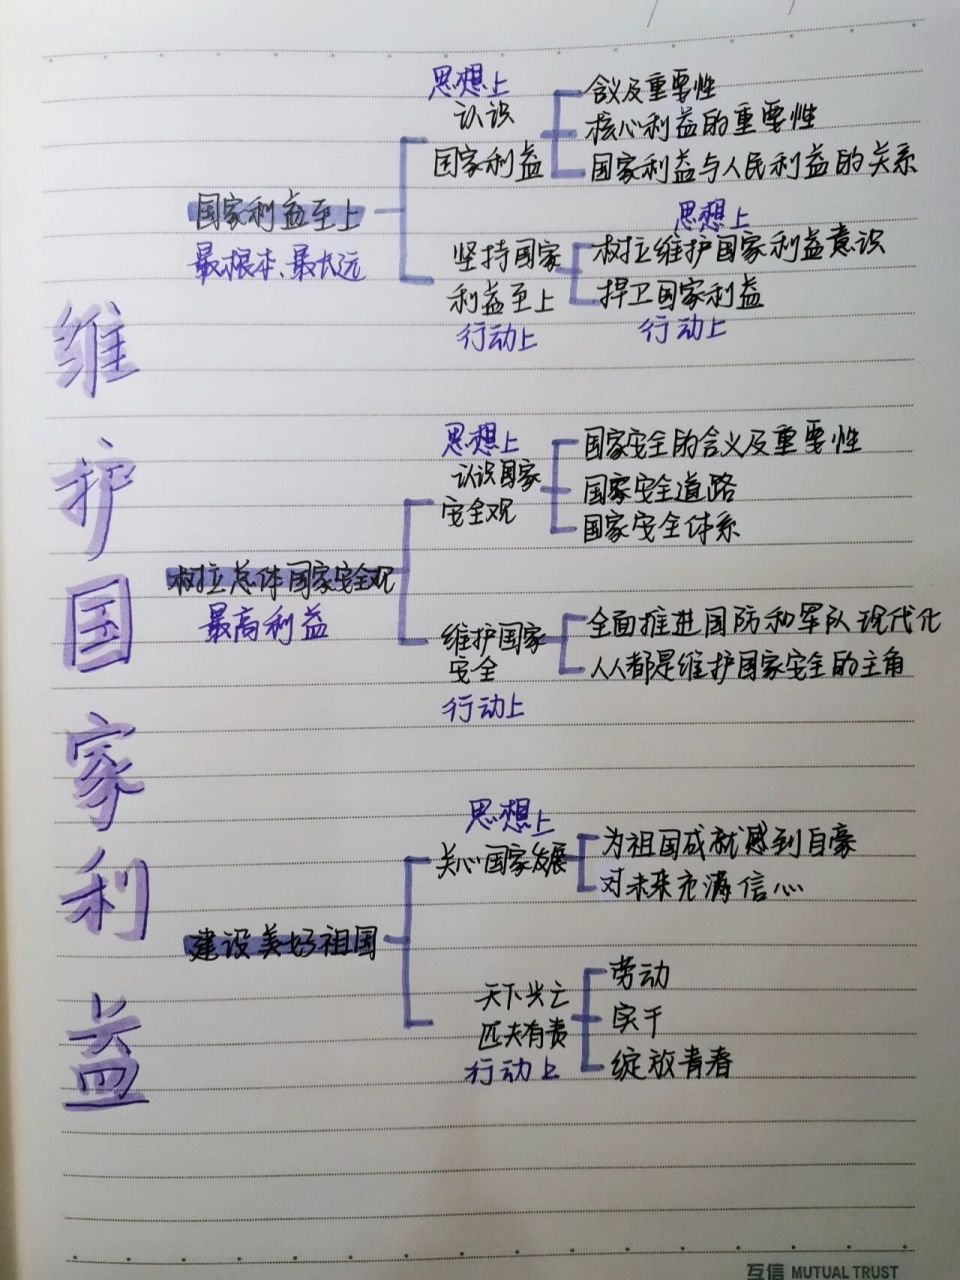 维护国家利益
国家利益至上
最根本、最长远
思想上
认识
国家利益
含义及重要性
核心利益的重要性
国家利益与人民利益的关系
坚持国家
利益至上
行动上
思想上
树立维护国家利益意识
捍卫国家利益
行动上
树立总体国家安全观
最高利益
思想上
认识国家
安全观
国家安全的含义及重要性
国家安全道路
国家安全体系
维护国家
安全
行动上
全面推进国防和军队现代化
人人都是维护国家安全的主角
建设美好祖国
思想上
关心国家发展
为祖国成就感到自豪
对未来充满信心
天下兴亡
匹夫有责
行动上
劳动
实干
绽放青春
互信 MUTUAL TRUST